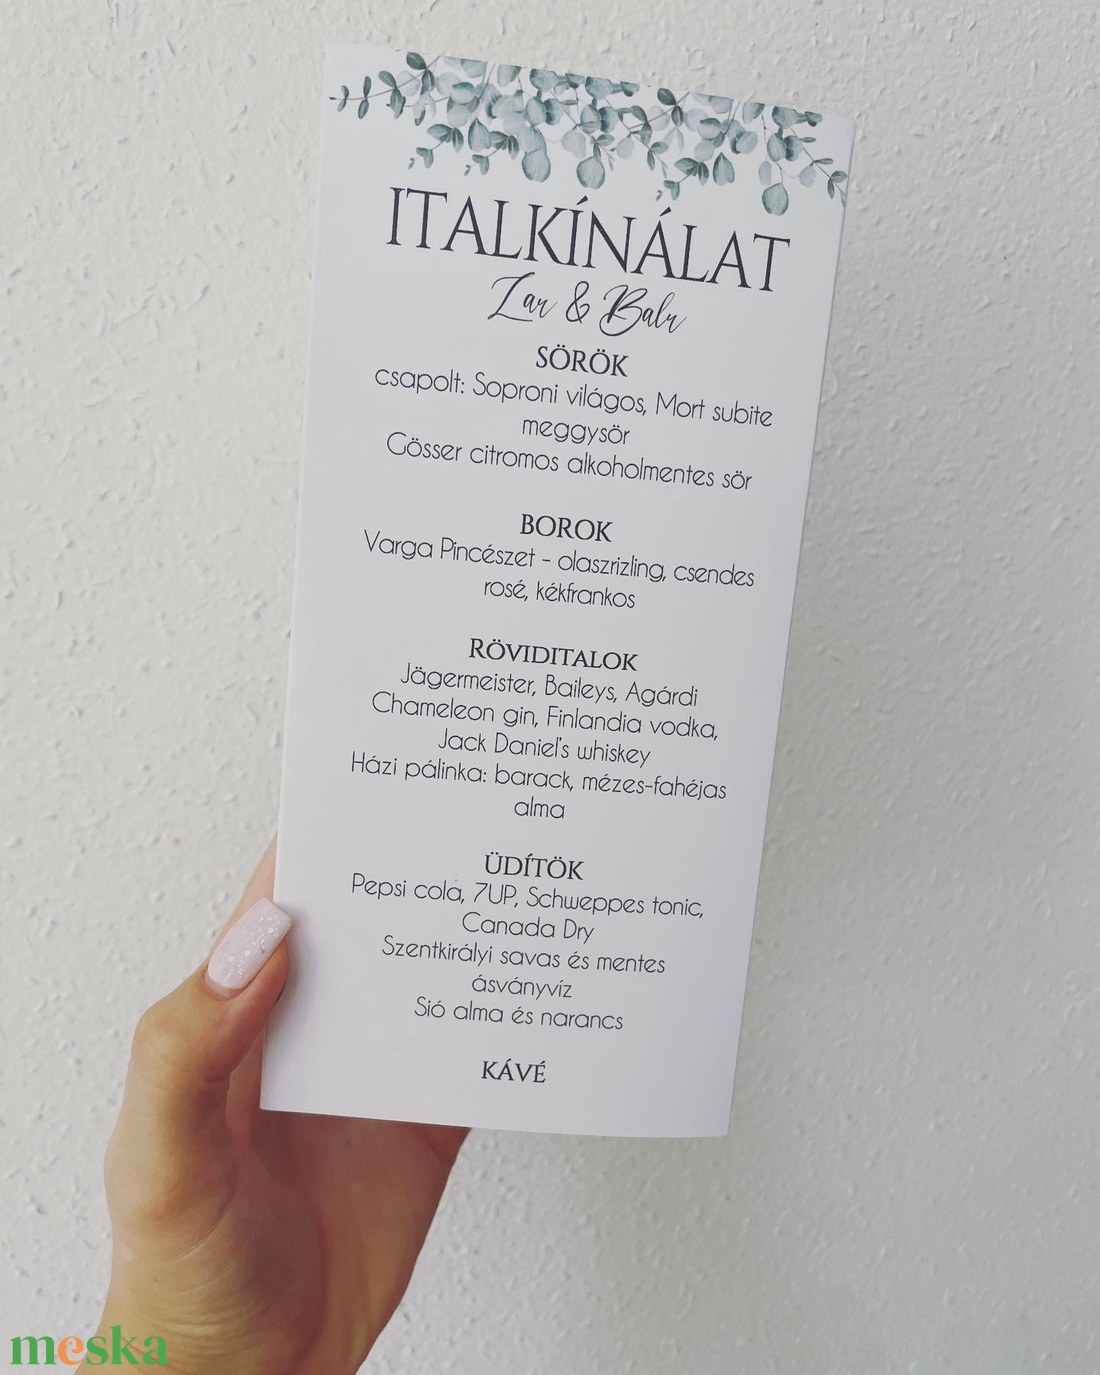 ITALKÍNÁLAT
Zau & Balu
SÖRÖK
csapolt: Soproni világos, Mort subite
meggysör
Gösser citromos alkoholmentes sör
BOROK
Varga Pincészet - olaszrizling, csendes
rosé, kékfrankos
RÖVIDITALOK
Jägermeister, Baileys, Agárdi
Chameleon gin, Finlandia vodka,
Jack Daniel's whiskey
Házi pálinka: barack, mézes-fahéjas
alma
ÜDÍTŐK
Pepsi cola, 7UP, Schweppes tonic,
Canada Dry
Szentkirályi savas és mentes
ásványvíz
Sió alma és narancs
KÁVÉ
meska